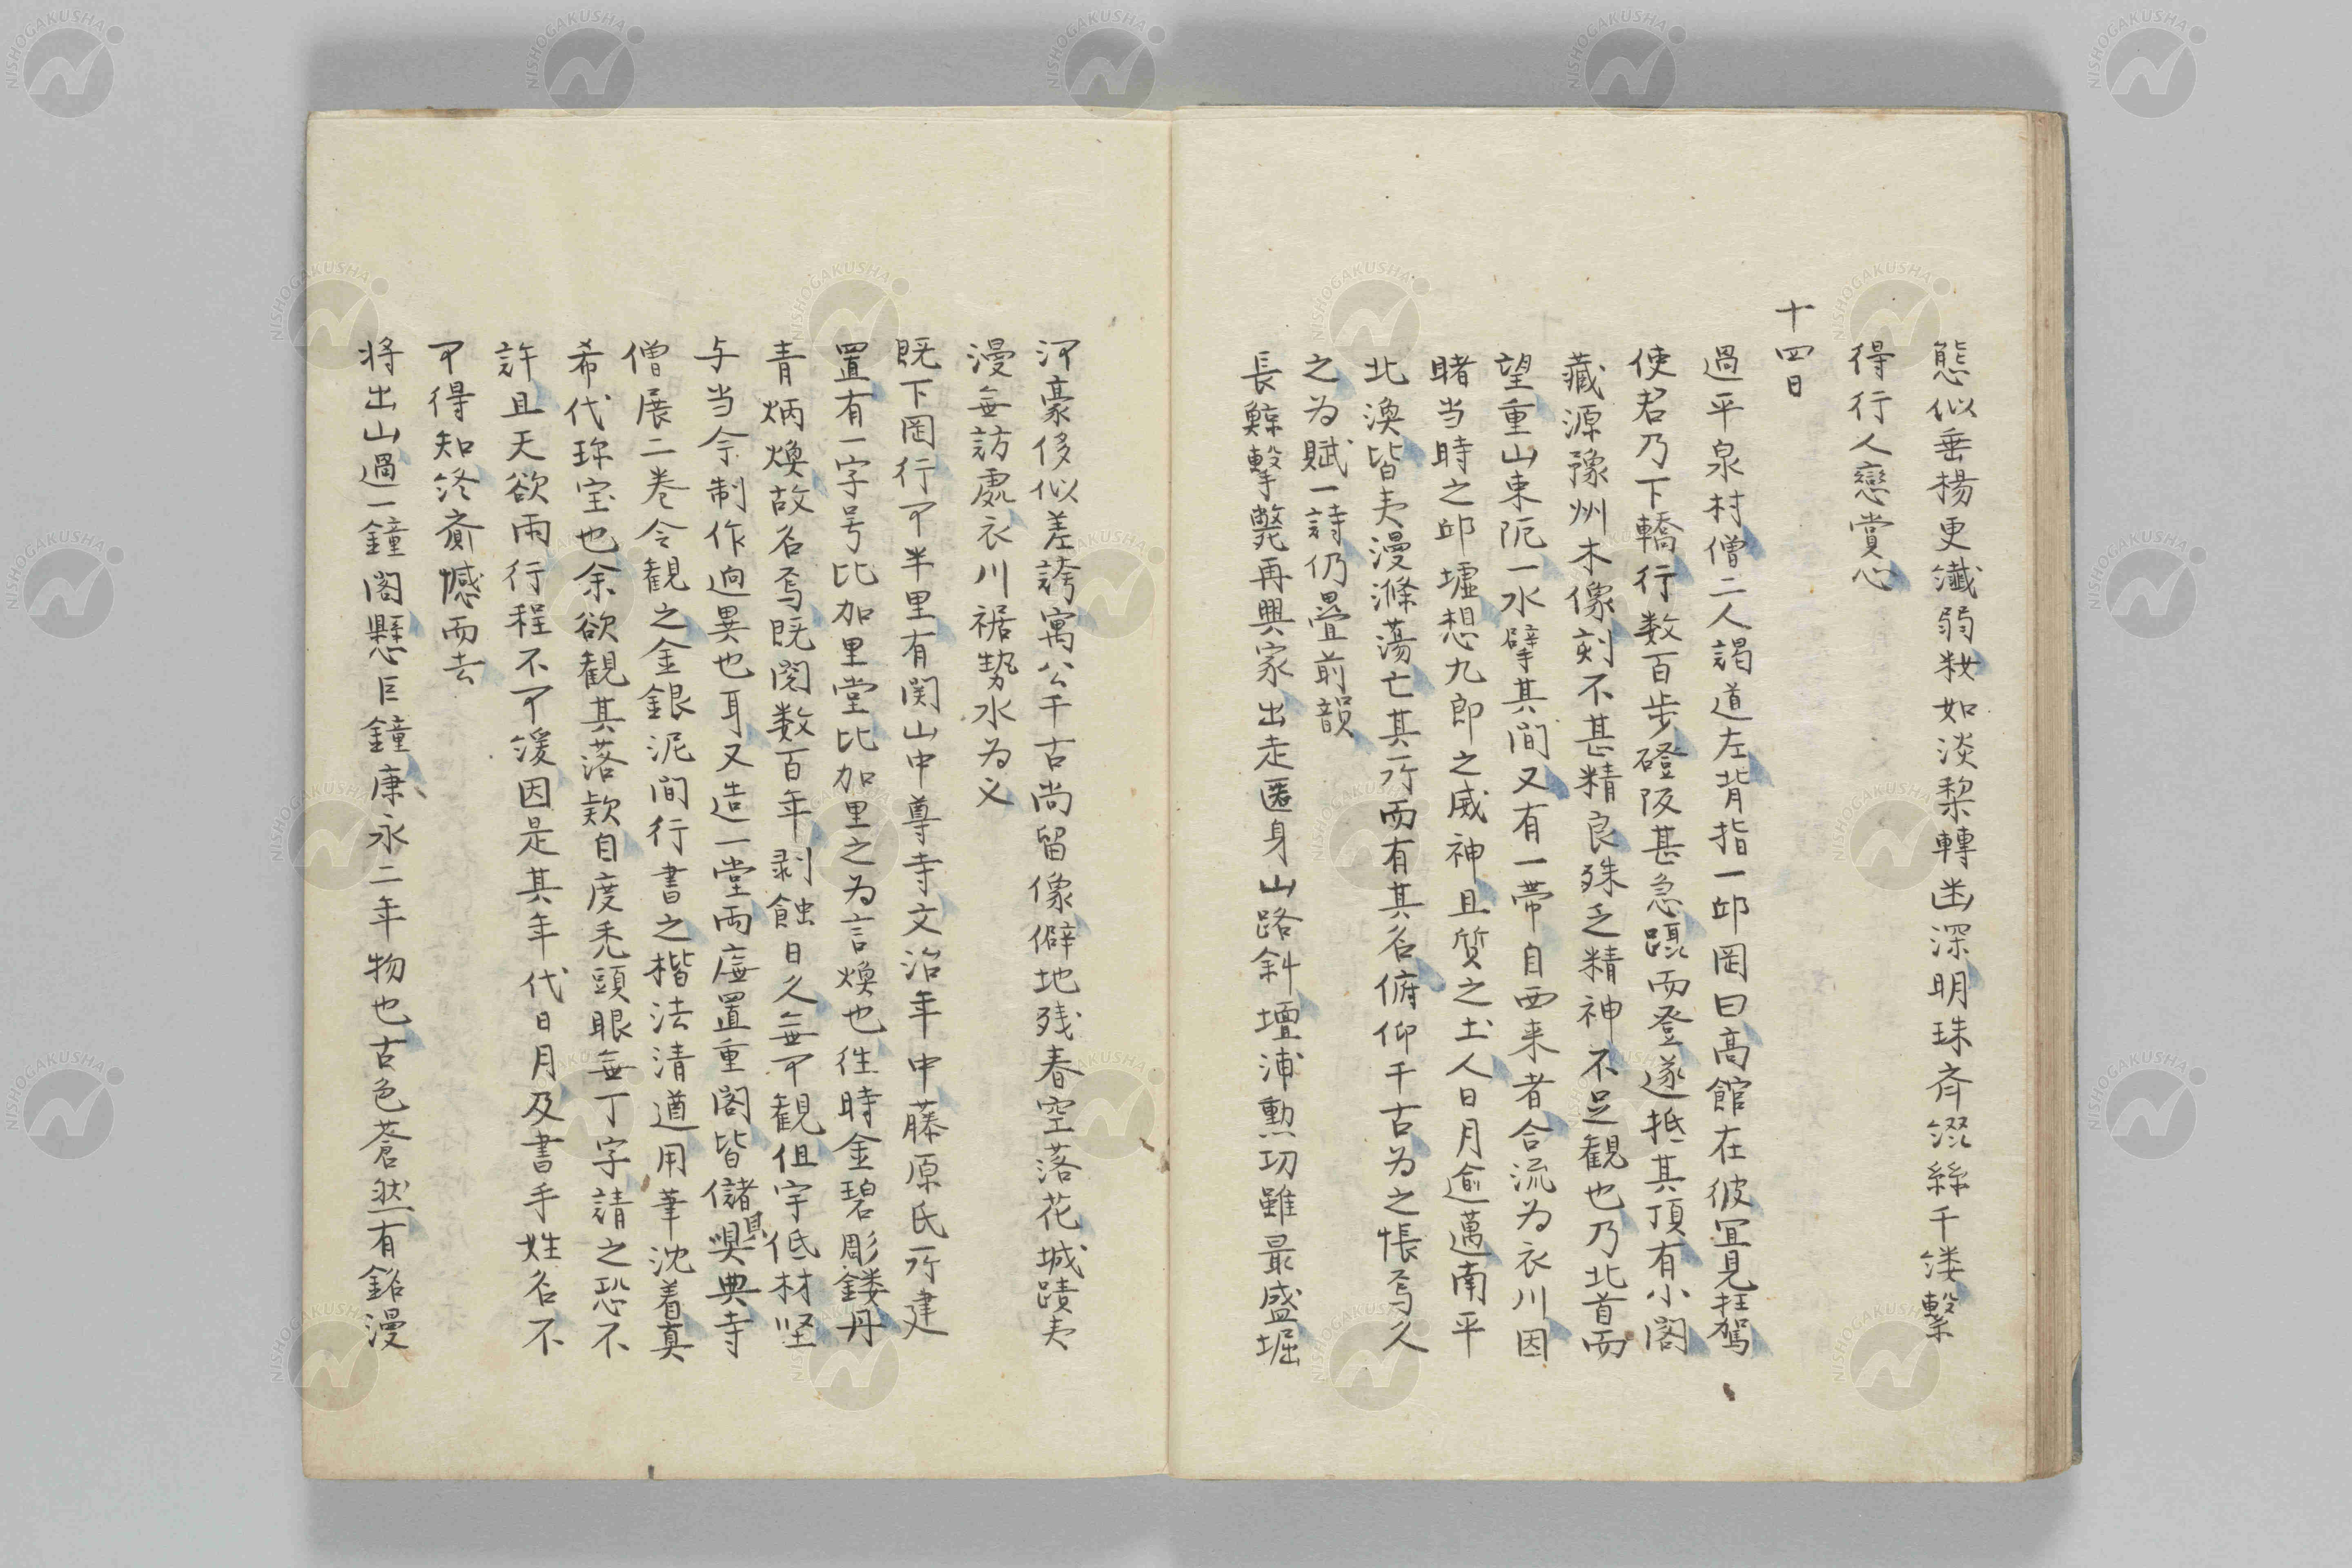 態似垂楊更纎弱籹如淡梨轉幽深明珠斉綴絲千縷繋
得行人戀賞心
十四日
過平泉村僧二人謁道左背指一邱岡曰髙館在彼冝見抂駕
使君乃下轎行数百歩磴阪甚急躡而登遂抵其頂有小閣
藏源豫州木像刻不甚精良殊乏精神不足観也乃北首而
望重山束阨一水擘其間又有一帯自西来者合流为衣川因
睹当時之邱墟想九郎之威神且質之土人日月逾邁南平
北渙皆夷漫滌蕩亡其所而有其名俯仰千古为之悵焉久
之为賦一詩仍疊前韻
長鯨撃斃再興家出走匿身山路斜壇浦勲功雖最盛堀
河豪侈似差誇寓公千古尚留像僻地残春空落花城蹟夷
漫無訪處衣川裾㔟水为文
既下岡行可半里有関山中尊寺文治年中藤原氏所建
置有一字号比加里堂比加里之为言煥也徃時金碧彫鏤丹
青炳煥故名焉既閲数百年剥蝕日久無可観但宇低材堅
与当今制作逈異也耳又造一堂両庑置重閣皆儲具典寺
僧展二巻令観之金銀泥間行書之楷法清遒用筆沈着真
希代珎宝也余欲観其落款自度禿頭眼無丁字請之恐不
許且天欲雨行程不可緩因是其年代日月及書手姓名不
可得知終齎憾而去
将出山過一鐘閣懸巨鐘康永二年物也古色蒼然有銘漫
NISHOGAKUSHA